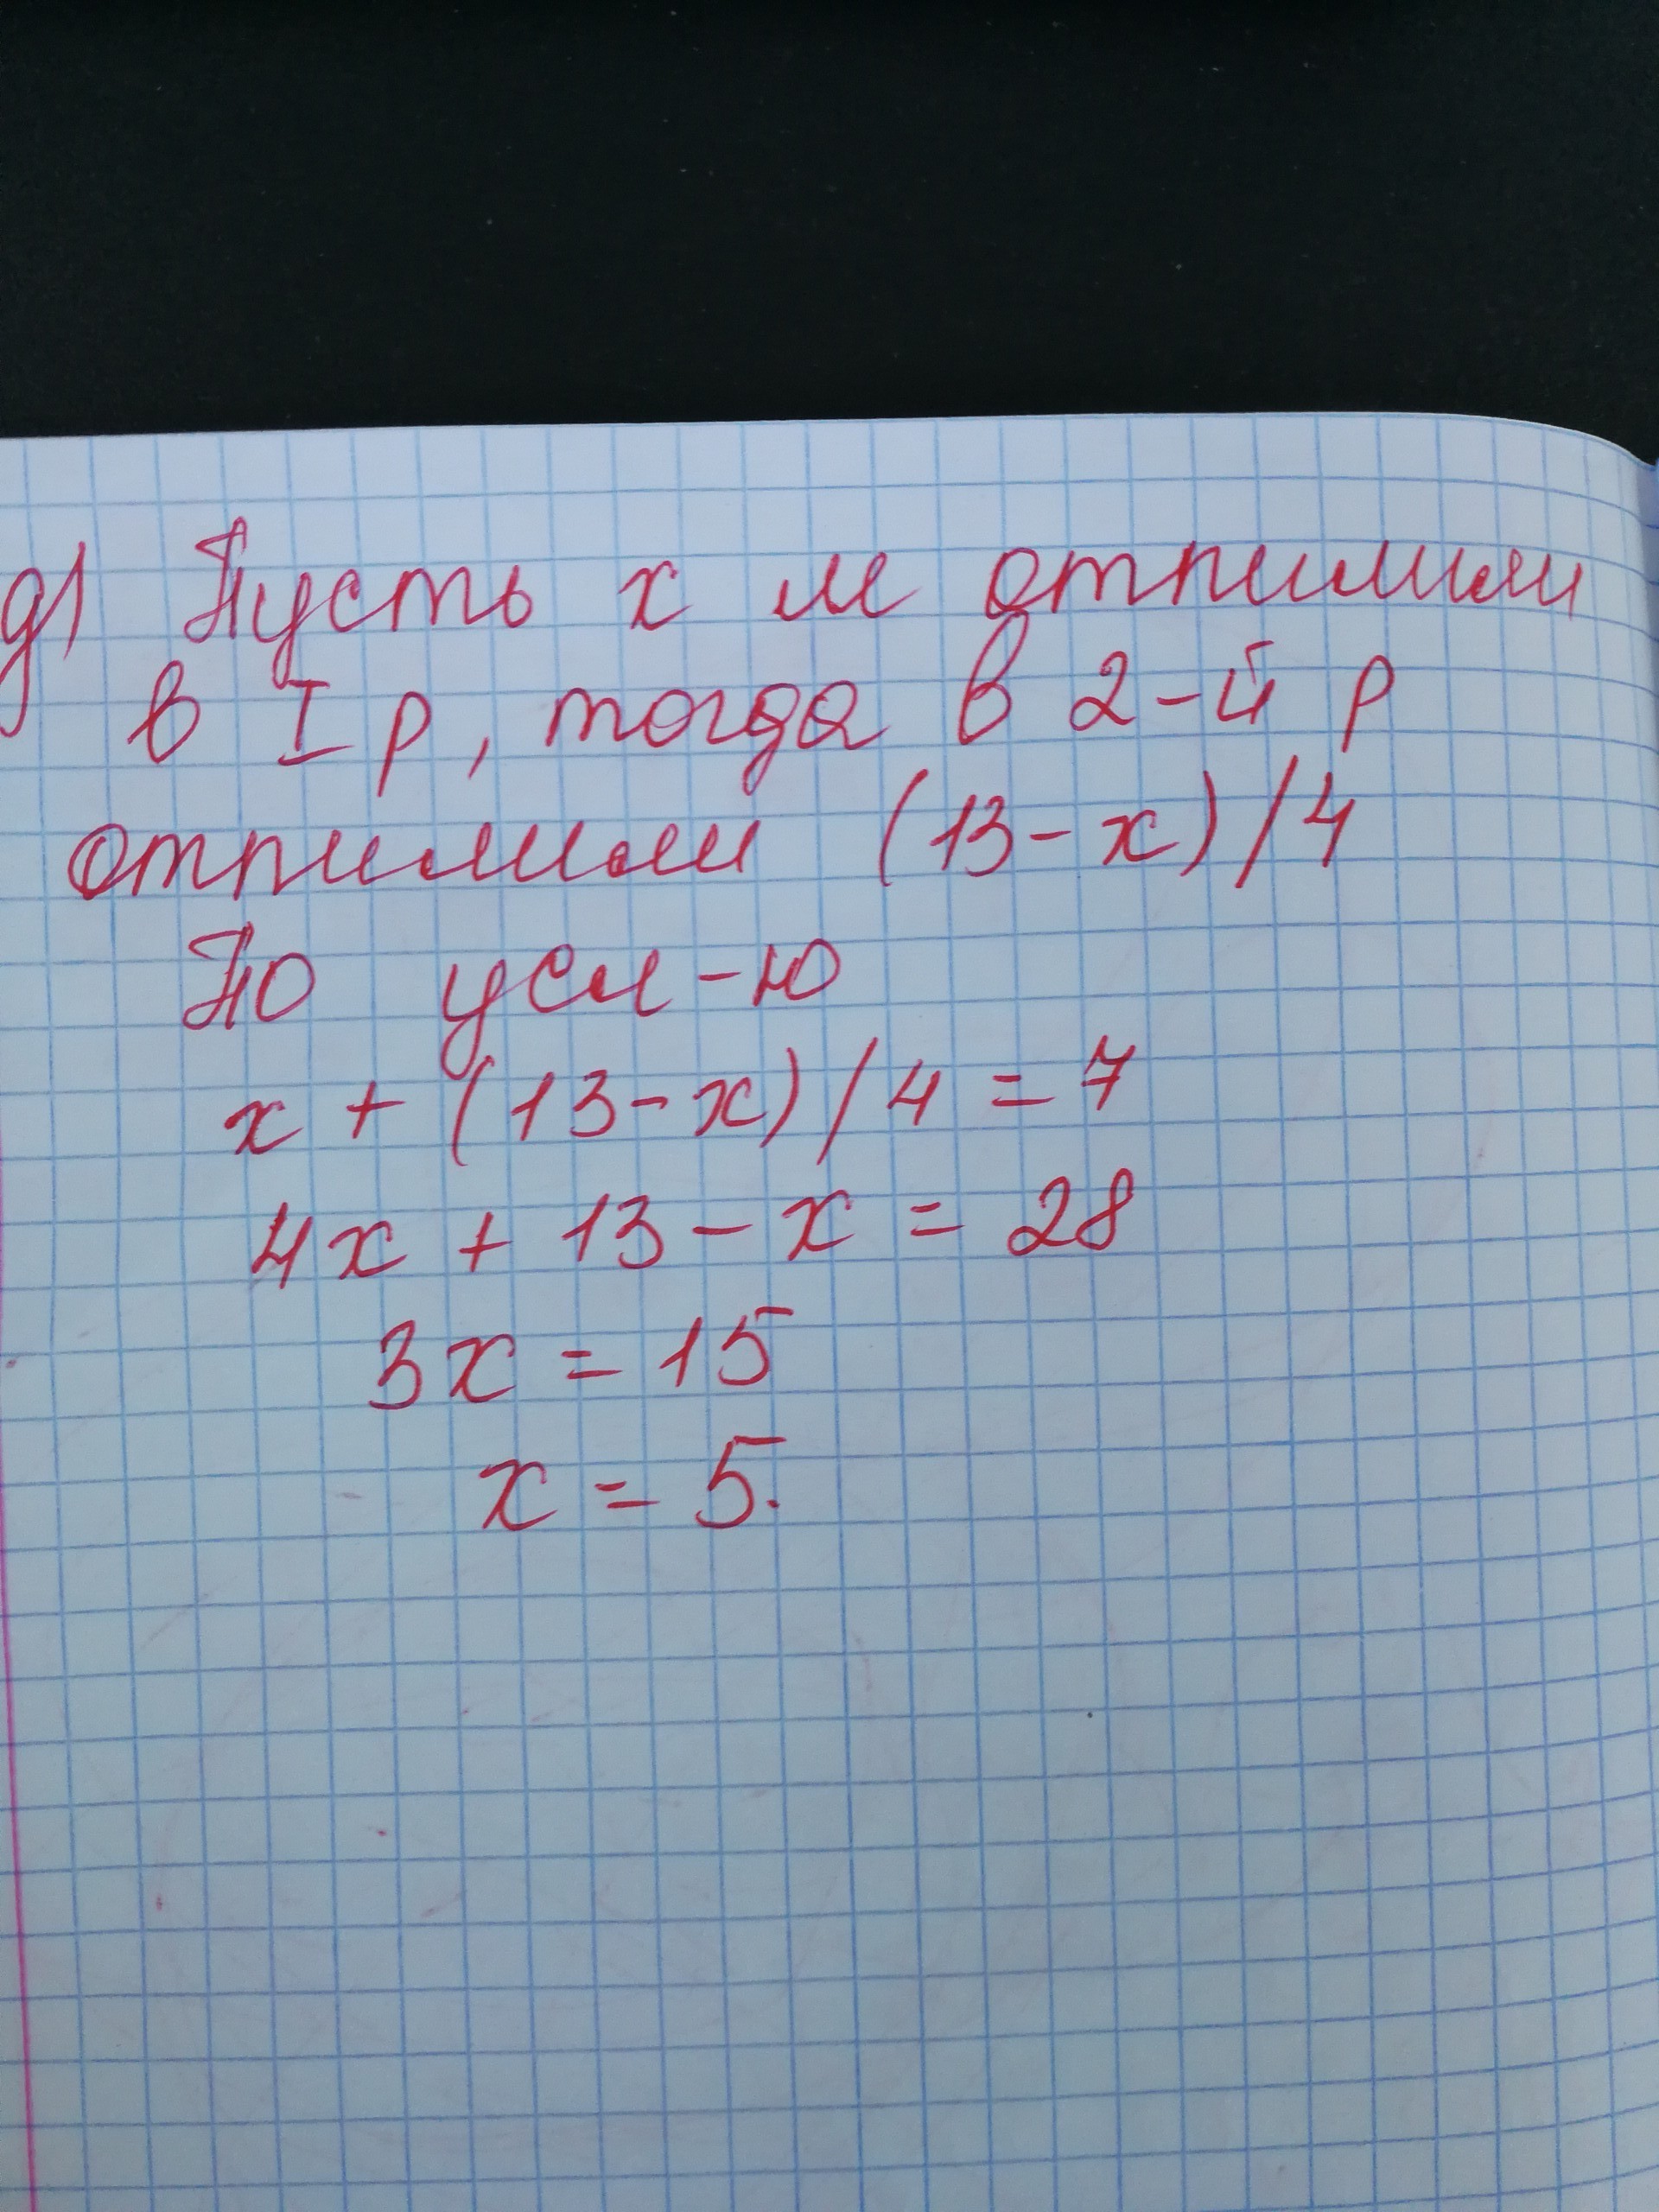 д) Пусть x м отпилили
в I р, тогда в 2-й р
отпилили (13-x)/4
По усл-ю
x + (13-x)/4 = 7
4x + 13 - x = 28
3x = 15
x = 5.